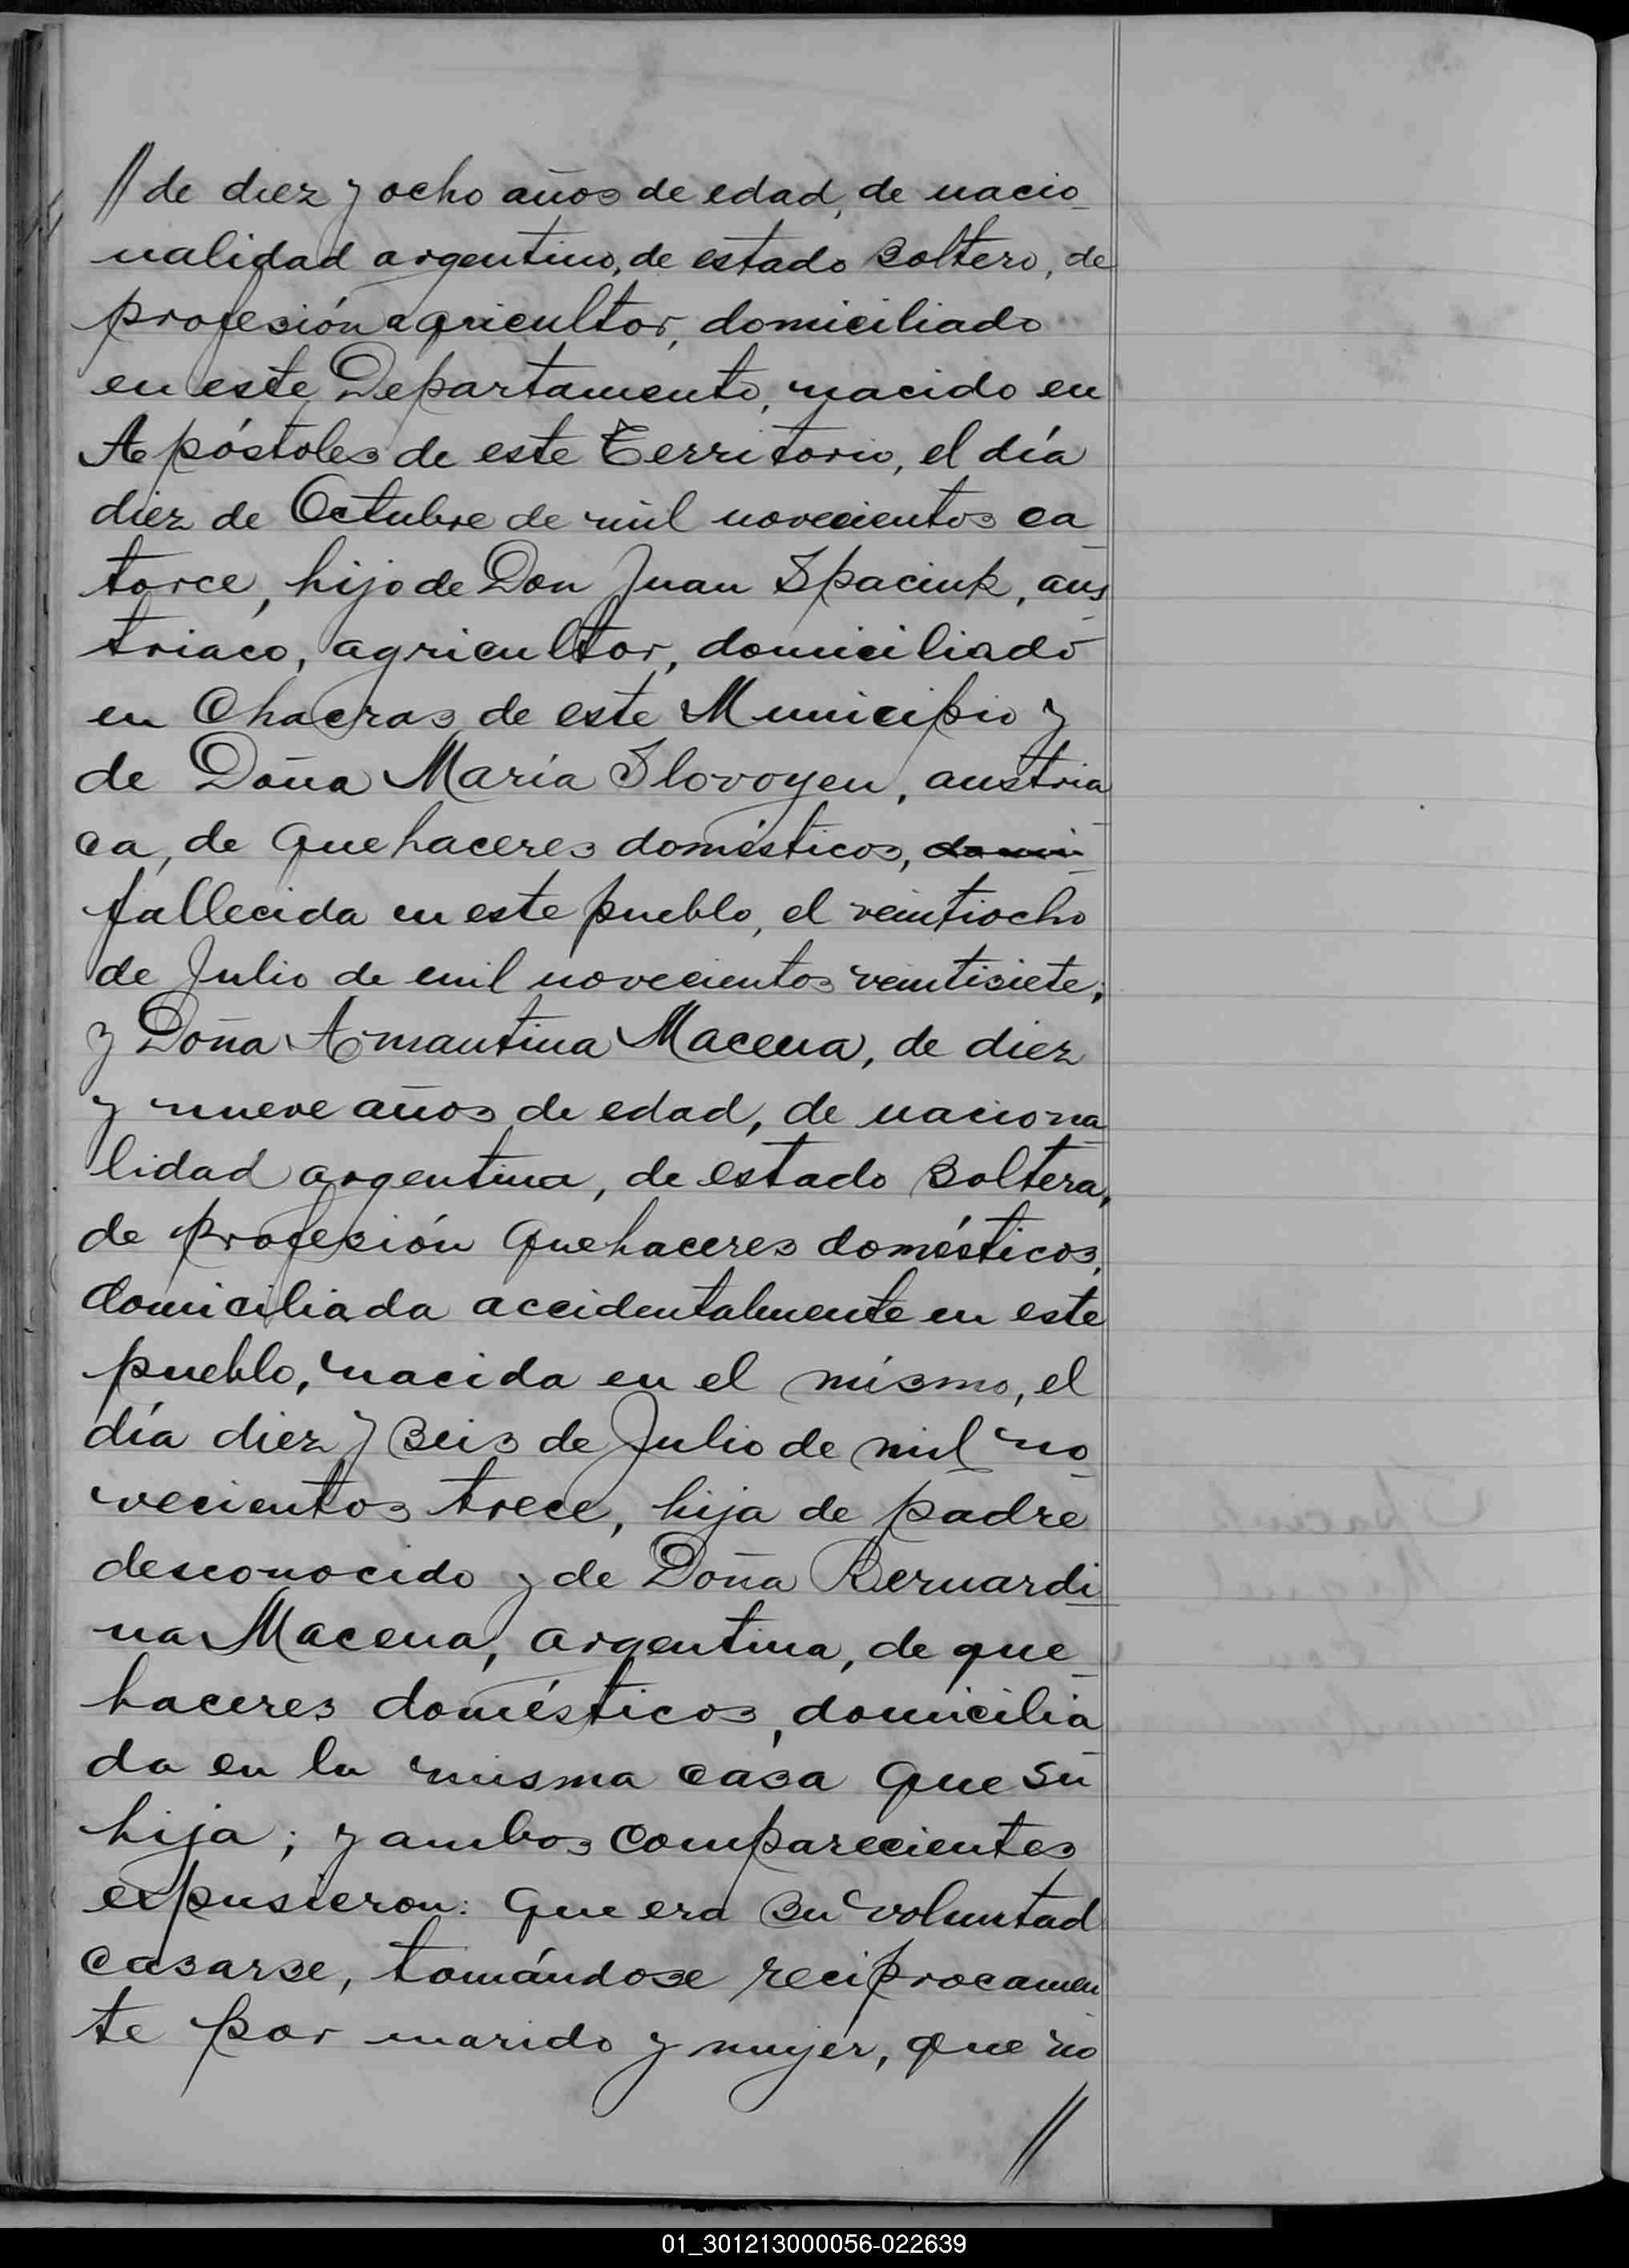 // de diez y ocho años de edad, de nacio
nalidad argentino, de estado soltero, de
profesión agricultor, domiciliado
en este Departamento, nacido en
Apóstoles de este Territorio, el día
diez de Octubre de mil novecientos ca
torce, hijo de Don Juan Spaciuk, aus
triaco, agricultor, domiciliado
en Chacras de este Municipio y
de Doña María Slovoyen, austria
ca, de quehaceres domésticos, domi
fallecida en este pueblo, el veintiocho
de Julio de mil novecientos veintisiete;
y Doña Amantina Macena, de diez
y nueve años de edad, de naciona
lidad argentina, de estado soltera,
de profesión quehaceres domésticos,
domiciliada accidentalmente en este
pueblo, nacida en el mismo, el
día diez y seis de Julio de mil no
vecientos trece, hija de padre
desconocido y de Doña Bernardi
na Macena, argentina, de que
haceres domésticos, domicilia
da en la misma casa que su
hija; y ambos comparecientes
expusieron: que era su voluntad
casarse, tomándose reciprocamen
te por marido y mujer, que no
//
01_301213000056-022639